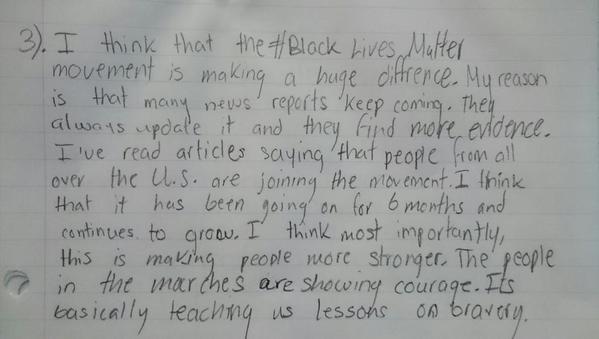 3). I think that the #Black Lives Matter
movement is making a huge diffrence. My reason
is that many news reports keep coming. They
always update it and they find more evidence.
I've read articles saying that people from all
over the U.S. are joining the movement. I think
that it has been going on for 6 months and
continues to grow. I think most importantly,
this is making people more stronger. The people
in the marches are showing courage. Its
basically teaching us lessons on bravery.